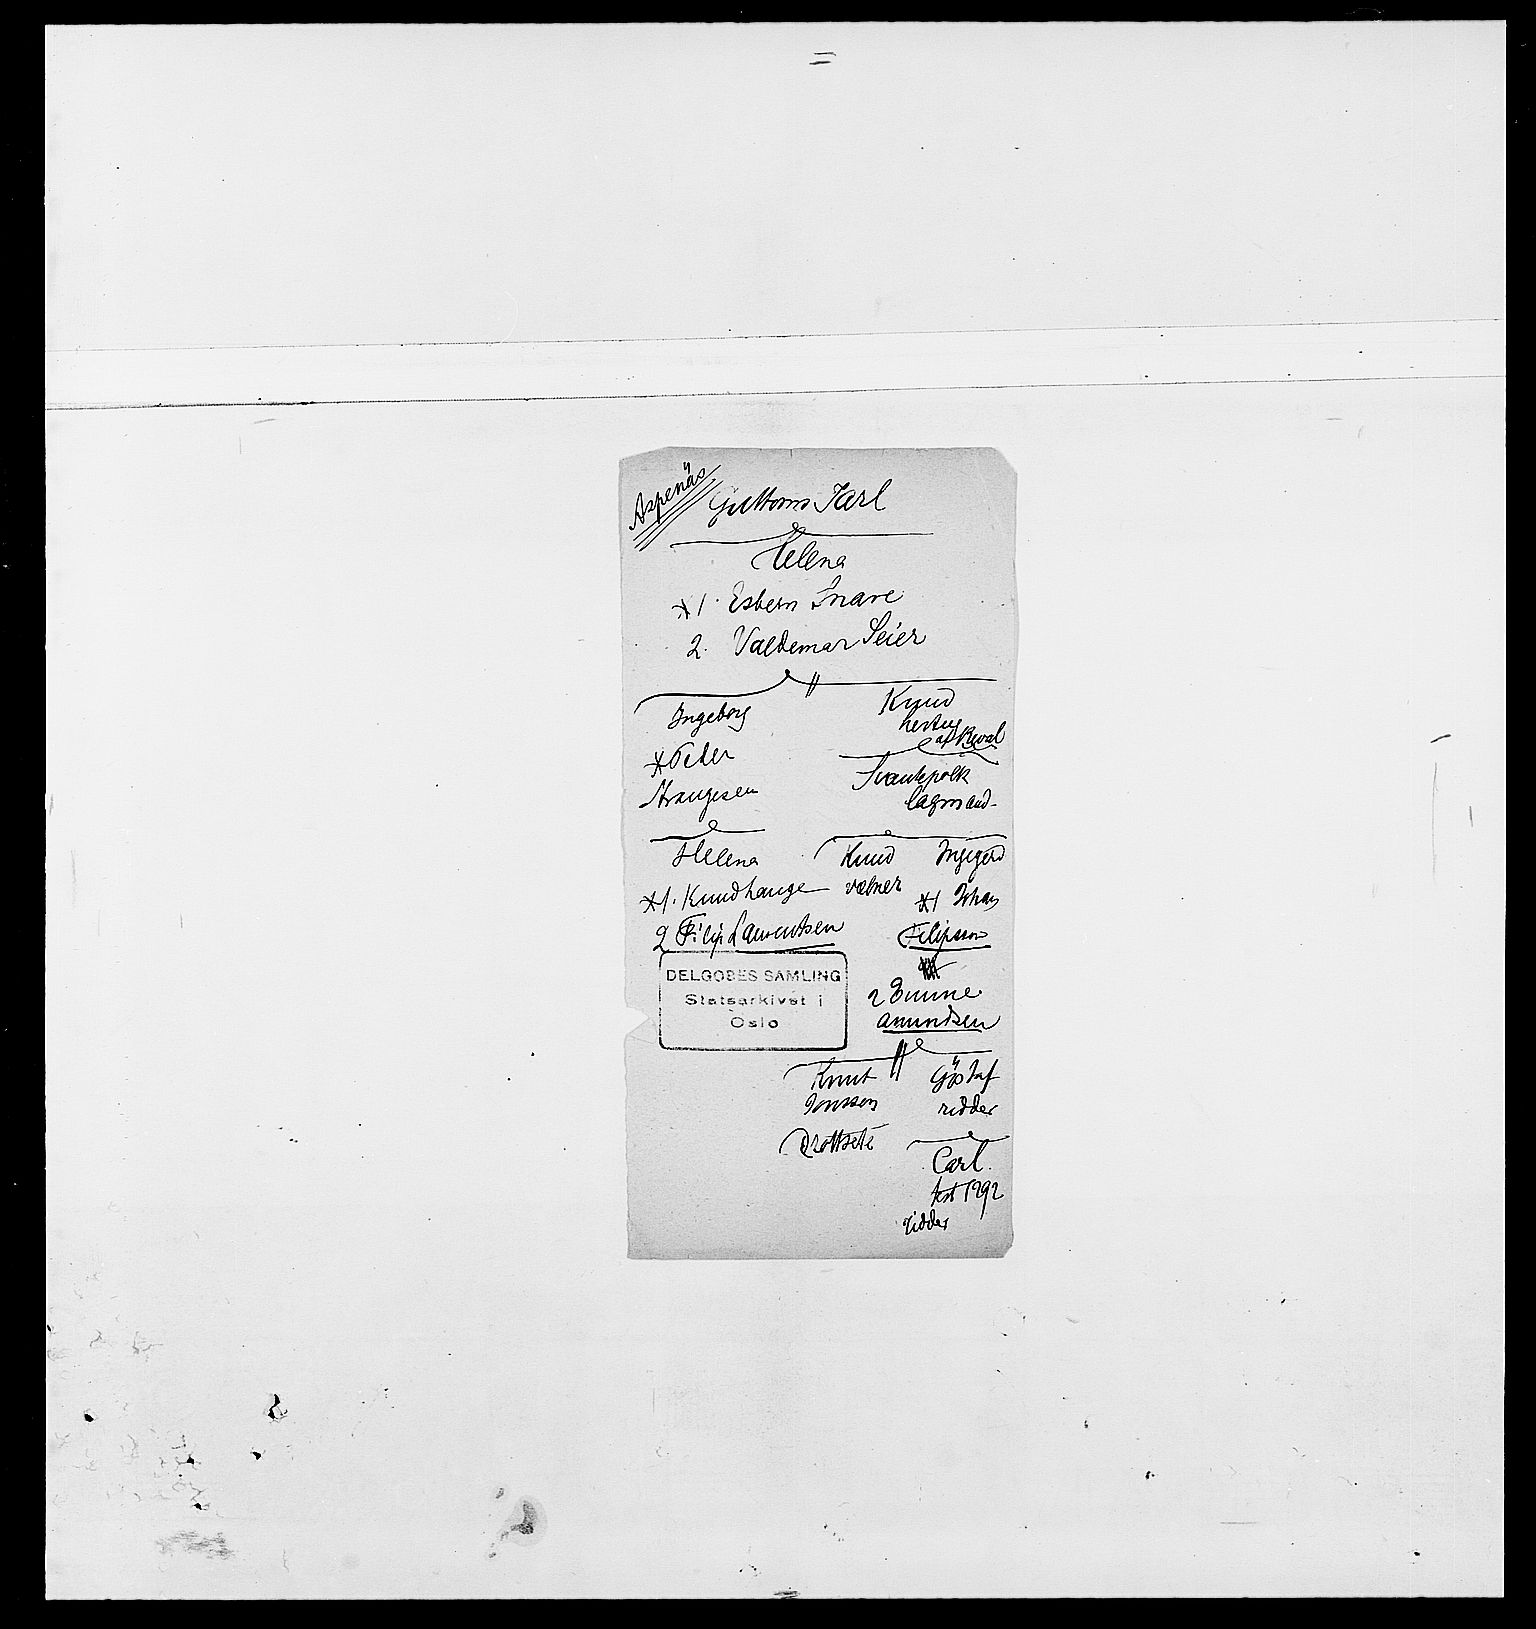 Aspenäs
Guttorms Jarl
Helena
*1. Esbern Snare
2. Valdemar Seier
Ingeborg
*Peder
Strangesen
Knud
hertug
af Reval
Svantepolk
lagmand
Helena
*1. Knud hauge
2 Filip Laurentsen
Knud
væbner
Ingigerd
*1 Johan
Filipsson
2
amundsen
DELGOBES SAMLING
Statsarkivet i
Oslo
Knut
Jonsson
Drottsete
Göstaf
ridder
Carl.
test 1292
ridder